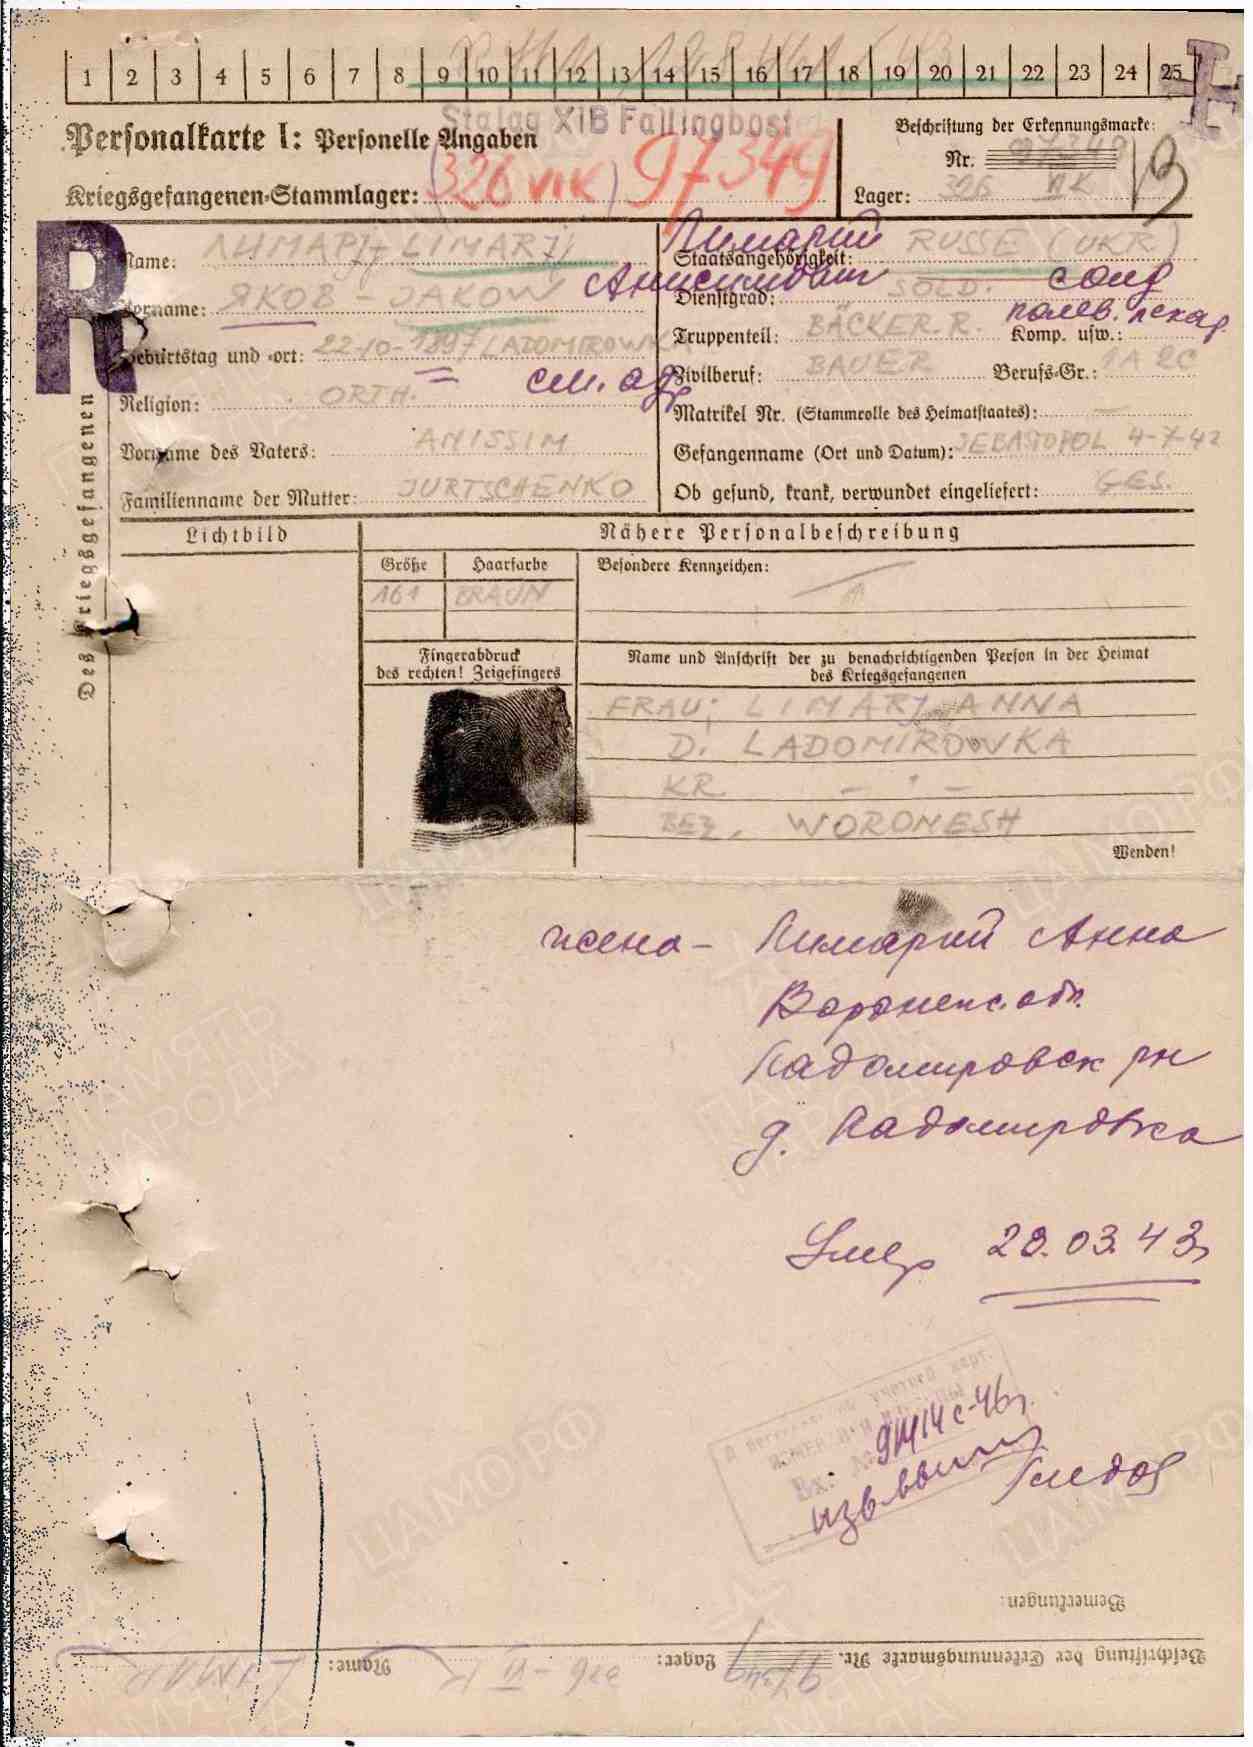 1 2 3 4 5 6 7 8 9 10 11 12 13 14 15 16 17 18 19 20 21 22 23 24 25
Stalag XIB Fallingbost
Personalkarte I: Personelle Angaben
Kriegsgefangenen-Stammlager: (326 VI K) 97349
Beschriftung der Erkennungsmarke:
Nr. 97349
Lager: 326 VI K
R
Des Kriegsgefangenen
Name: ЛИМАРЬ - LIMARJ
Vorname: ЯКОВ - JAKOW
Анисимович
Geburtstag und -ort: 22-10-1897 LADOMIROWKA
Religion: ORTH.
см. об
Vorname des Vaters: ANISSIM
Familienname der Mutter: JURTSCHENKO
Лимарий
Staatsangehörigkeit: RUSSE (UKR)
Dienstgrad: SOLD. солд
Truppenteil: BÄCKER. R. Komp. usw.: полев. пекар
Zivilberuf: BAUER Berufs-Gr.: 1A 2C
Matrikel Nr. (Stammrolle des Heimatstaates): —
Gefangenname (Ort und Datum): SEBASTOPOL 4-7-42
Ob gesund, krank, verwundet eingeliefert: GES.
Lichtbild
Nähere Personalbeschreibung
Größe Haarfarbe Besondere Kennzeichen:
161 BRAUN
Fingerabdruck
des rechten! Zeigefingers
Name und Anschrift der zu benachrichtigenden Person in der Heimat
des Kriegsgefangenen
FRAU; LIMARJ ANNA
D. LADOMIROWKA
KR — " —
BEZ. WORONESH
Wenden!
жена - Лимарий Анна
Воронежс. обл.
Ладомировск рн
д. Ладомировка
Умер 28.03.43
Вх.
91414с-46г.
Bemerkungen:
Beschriftung der Erkennungsmarke Nr. 97349 Lager: 326 - VI K Name: LIMAR
ПАМЯТЬ НАРОДА
ЦАМО РФ